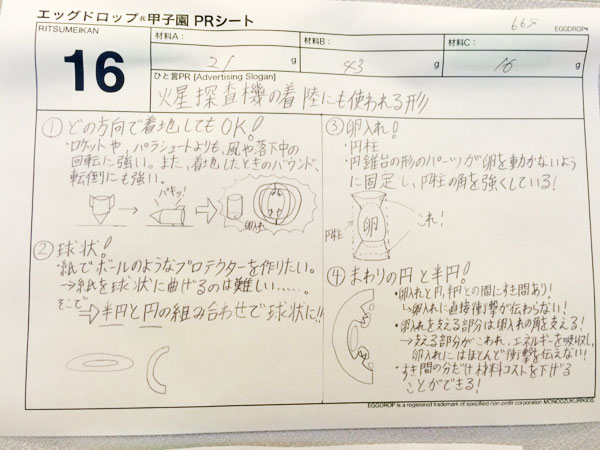 エッグドロップ®甲子園 PRシート
665
RITSUMEIKAN
EGGDROP®
16
材料A:
21 g
材料B:
43 g
材料C:
16 g
ひと言PR [Advertising Slogan]
火星探査機の着陸にも使われる形
① どの方向で着地してもOK!
・ロケットや、パラシュートよりも、風や落下中の
回転に強い。また、着地したときのバウンド、
転倒にも強い。
バキッ!
卵入れ
② 球状!
・紙でボールのようなプロテクターを作りたい。
→紙を球状に曲げるのは難しい……。
そこで
⇒半円と円の組み合わせで球状に!!
③ 卵入れ!
・円柱
・円錐台の形のパーツが卵を動かないよう
に固定し、円柱の角を強くしている!
円柱
卵
これ!
④ まわりの円と半円!
・卵入れと円,半円との間にすき間あり!
↳卵入れに直接衝撃が伝わらない!
・卵入れを支える部分は卵入れの角を支える!
→支える部分がこわれ、エネルギーを吸収し、
卵入れにはほとんど衝撃を伝えない!
・すき間の分だけ材料コストを下げる
ことができる!
EGGDROP is a registered trademark of specified non-profit corporation MONODZUKURIKIDS.